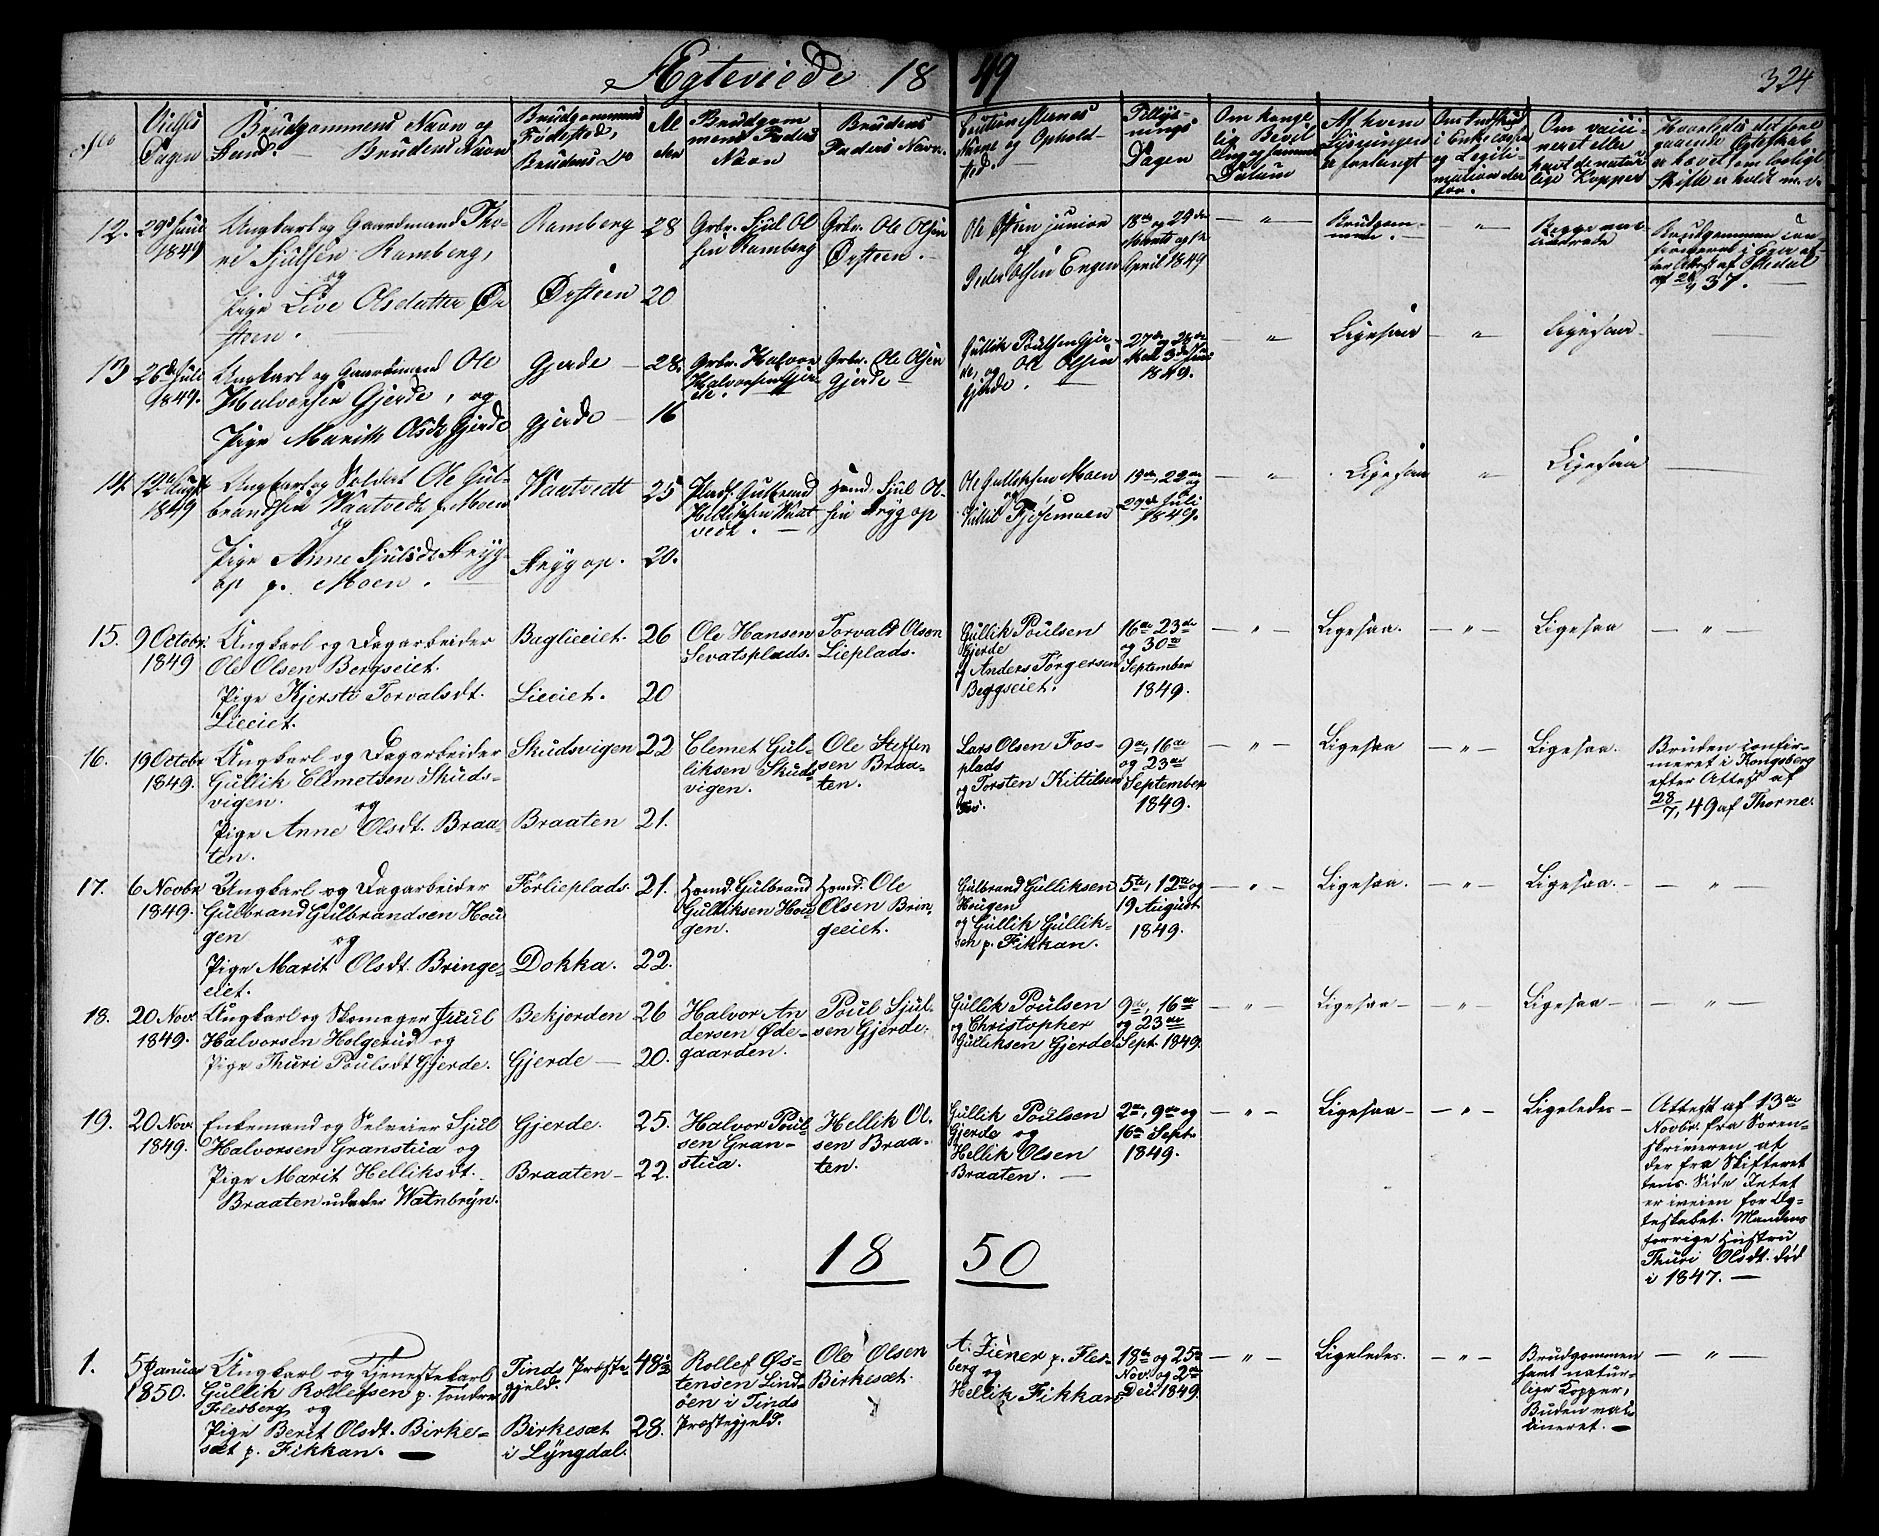 Ægteviede 1849
324
No
Vielses Dagen
Brudgommens Navn og Stand. — Brudens Navn
Brudgommens Fødested, Brudens Do
Al der
Brudgom mens Faders Navn
Brudens Faders Navn.
Cautionisternes Navne og Opholdsted.
Tillysnings Dagen
Om kongelig Bevilling og sammes Datum
Af hvem Lysningen er forlangt
Om Indskud i Enkekassen og Legitimation derfor.
Om vaccineret eller havt de naturlige Kopper
12.
29de Juni 1849
Ungkarl og Gaardmand Tho-
re Sjulsen Ramberg,
og
Pige Live Olsdatter Ør
steen.
Ramberg
Ørsteen
28
20
Grbr. Sjul Ol
sen Ramberg
Grbr. Ole Olsen
Ørsteen.
Ole Olsen junior
og
Peder Olsen Engen
18de og 29de
Marts og
April 1849
— " —
Brudgom-
men.
— " —
Begge vac-
cinerede
Brudgommen con-
37.
13
26de Juli 1849.
Ungkarl og Gaardmand Ole
Halvorsen Gjerde, og
Pige Marith Olsdt Gjerde
Gjerde
Gjerde
28.
16
Grbr. Halvor
Halvorsen Gjer-
de.
Grbr. Ole Olsen
Gjerde
Gullik Poulsen Gjer-
de, og Ole Olsen
Gjerde.
27de og 28de
Mai 3de Juni
1849.
— " —
Ligesaa
— " —
Ligesaa
14
12te Augt 1849
Ungkarl og Soldat Ole Gul-
brandsen Waatvedt p. Moen
og
Pige Anne Sjulsdt Stryg-
op p. Moen.
Waatvedt
Strygop.
25
20.
Plads. Gulbrand
Helliksen Waat
vedt.
Hmd. Sjul Ol-
sen Strygop
Ole Gulliksen Moen
og
Kittil Fjøsemoen
15de, 22de og
29de Juli
1849.
— " —
Ligesaa
"
Ligesaa
15.
9 Octobr. 1849
Ungkarl og Dagarbeider
Ole Olsen Bergseiet.
Pige Kjersti Torvalsdt.
Lieeiet.
Baglieeiet.
Lieeiet.
26
20
Ole Hansen
Sevatsplads.
Torvald Olsen
Lieplads.
Gullik Poulsen
Gjerde
og Anders Torgersen
Beggseiet.
16de 23de
og 30te
September
1849.
— " —
Ligesaa.
— " —
Ligesaa
— " —
16.
19 Octobr 1849.
Ungkarl og Dagarbeider
Gullik Clemetsen Skuds-
vigen.
og
Pige Anne Olsdt. Braa-
ten.
Skudsvigen
Braaten
22
21.
Clemet Gul-
liksen Skuds-
vigen.
Ole Steffen
sen Braa-
ten.
Lars Olsen Fos-
plads
og Torsten Kittilsen
9de, 16de
og 23de
September
1849.
— " —
Ligesaa
— " —
Ligesaa.
Bruden confir-
meret i Kongsberg
efter Attest af
28/7, 49 af Thorne.
17.
6 Novbr 1849.
Ungkarl og Dagarbeider
Gulbrand Gulbrandsen Hou
gen
og
Pige Marit Olsdt. Bringe-
eiet.
Forlieplads.
Dokka.
21.
22.
Hsmd. Gulbrand
Gulliksen Hou-
gen.
Hsmd. Ole
Olsen Brin-
geeiet.
Gulbrand Gulliksen
Hougen
og Gullik Gullik-
sen p. Fikkan.
5te, 12te og
19 August
1849.
— " —
Ligesaa.
— " —
Ligesaa.
— " —
18.
20 Nov. 1849.
Ungkarl og Skomager Juul
Halvorsen Holgerud og
Pige Thuri Poulsdt Gjerde.
Bekjorden
Gjerde —
26
20.
Halvor An
dersen Øde-
gaarden.
Poul Sjul-
sen Gjerde.
Gullik Poulsen
og Christopher
Gulliksen Gjerde
9de, 16de
og 23de
Sept. 1849.
— " —
Ligesaa —
— " —
Ligesaa —
— " —
19.
20 Nov. 1849.
Enkemand og Selveier Sjul
Halvorsen Granstua og
Pige Marit Helliksdt.
Braaten under Watnbryn.
Gjerde.
Braaten —
25.
22.
Halvor Poul-
sen Gran-
stua.
Hellik Ol-
sen Braa-
ten.
Gullik Poulsen
Gjerde og
Hellik Olsen
Braaten. —
2de, 9de og
16de Sept.
1849.
— " —
Ligesaa —
— " —
Ligeledes —
Attest af 13de
Novbr. fra Soren-
skriveren at
der fra Skifteret
tens Side Intet
er iveien for Æg-
teskabet. Mandens
forrige Hustru
Thuri Olsdt. død
i 1847. —
1850
1.
5 Januar 1850.
Ungkarl og Tjenestekarl
Gullik Rollefsen p. Søndre
Flesberg og
Pige Berit Olsdt. Birke-
sæt p. Fikkan. —
Tinds Præste-
gjeld.
Birkesæt
i Lyngdal.
48½
28.
Rollef Øs-
tensen Lind-
søen i Tinds
Præstegjeld.
Ole Olsen
Birkesæt.
A. Ziener p. Fles-
berg og
Hellik Fikkan
18de og 25de
Nov. og 2de
Dec. 1849.
— " —
Ligeledes.
— " —
Brudgommen
havt natur-
lige Kopper,
Buden vac-
cineret. —
— " —